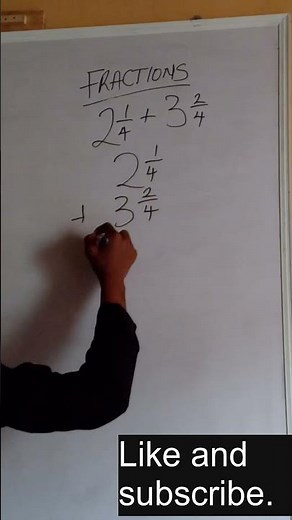 FRACTIONS
2 1/4 + 3 2/4
2 1/4
+ 3 2/4
Like and
subscribe.